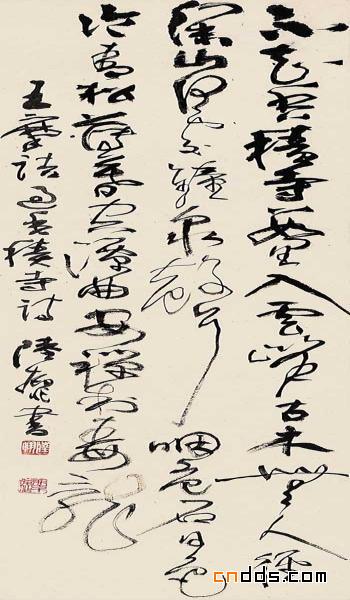 不知香積寺數里入雲峰古木無人徑
深山何處鐘泉聲咽危石日色
冷青松薄暮空潭曲安禪制毒龍
王摩詰過香積寺詩 陸康書
cndds.com